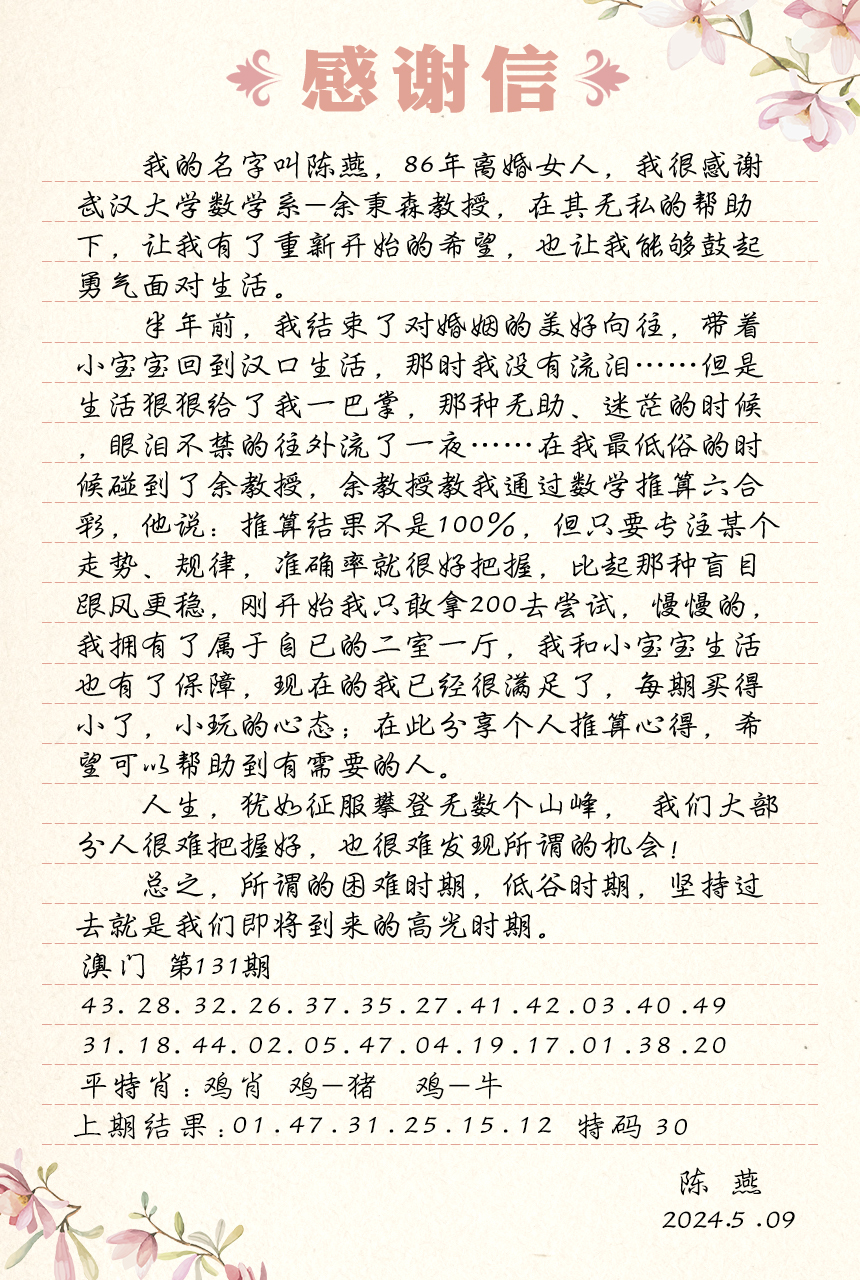 感谢信
我的名字叫陈燕，86年离婚女人，我很感谢
武汉大学数学系—余秉森教授，在其无私的帮助
下，让我有了重新开始的希望，也让我能够鼓起
勇气面对生活。
半年前，我结束了对婚姻的美好向往，带着
小宝宝回到汉口生活，那时我没有流泪……但是
生活狠狠给了我一巴掌，那种无助、迷茫的时候
，眼泪不禁的往外流了一夜……在我最低俗的时
候碰到了余教授，余教授教我通过数学推算六合
彩，他说：推算结果不是100%，但只要专注某个
走势、规律，准确率就很好把握，比起那种盲目
跟风更稳，刚开始我只敢拿200去尝试，慢慢的，
我拥有了属于自已的二室一厅，我和小宝宝生活
也有了保障，现在的我已经很满足了，每期买得
小了，小玩的心态；在此分享个人推算心得，希
望可以帮助到有需要的人。
人生，犹如征服攀登无数个山峰， 我们大部
分人很难把握好，也很难发现所谓的机会！
总之，所谓的困难时期，低谷时期，坚持过
去就是我们即将到来的高光时期。
澳门 第131期
43.28.32.26.37.35.27.41.42.03.40.49
31.18.44.02.05.47.04.19.17.01.38.20
平特肖：鸡肖 鸡—猪 鸡—牛
上期结果：01.47.31.25.15.12 特码30
陈 燕
2024.5.09